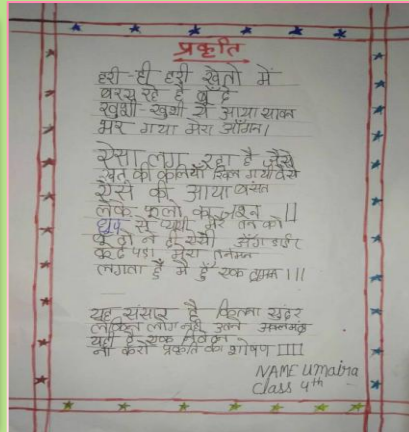 प्रकृति
हरी-ही हरी खेतों में
बरस रहे है बूंदे
खुशी-खुशी से आया सावन
भर गया मेरा आँगन।
ऐसा लग रहा है जैसे
की कलियाँ खिल गयी वैसे
ऐसे की आया बसंत
लेके फूलों का जश्न ||
धूप से प्यासी मेरे तन को
बूंदों ने दी
कूद पड़ा मेरा तनमन
लगता है मैं हूँ एक |||
यह संसार है कितना सुंदर
लेकिन लोग नहीं उतने अकलमंद
यही है एक निवेदन
ना करो प्रकृति का शोषण ||||
NAME Umaira
Class 4th